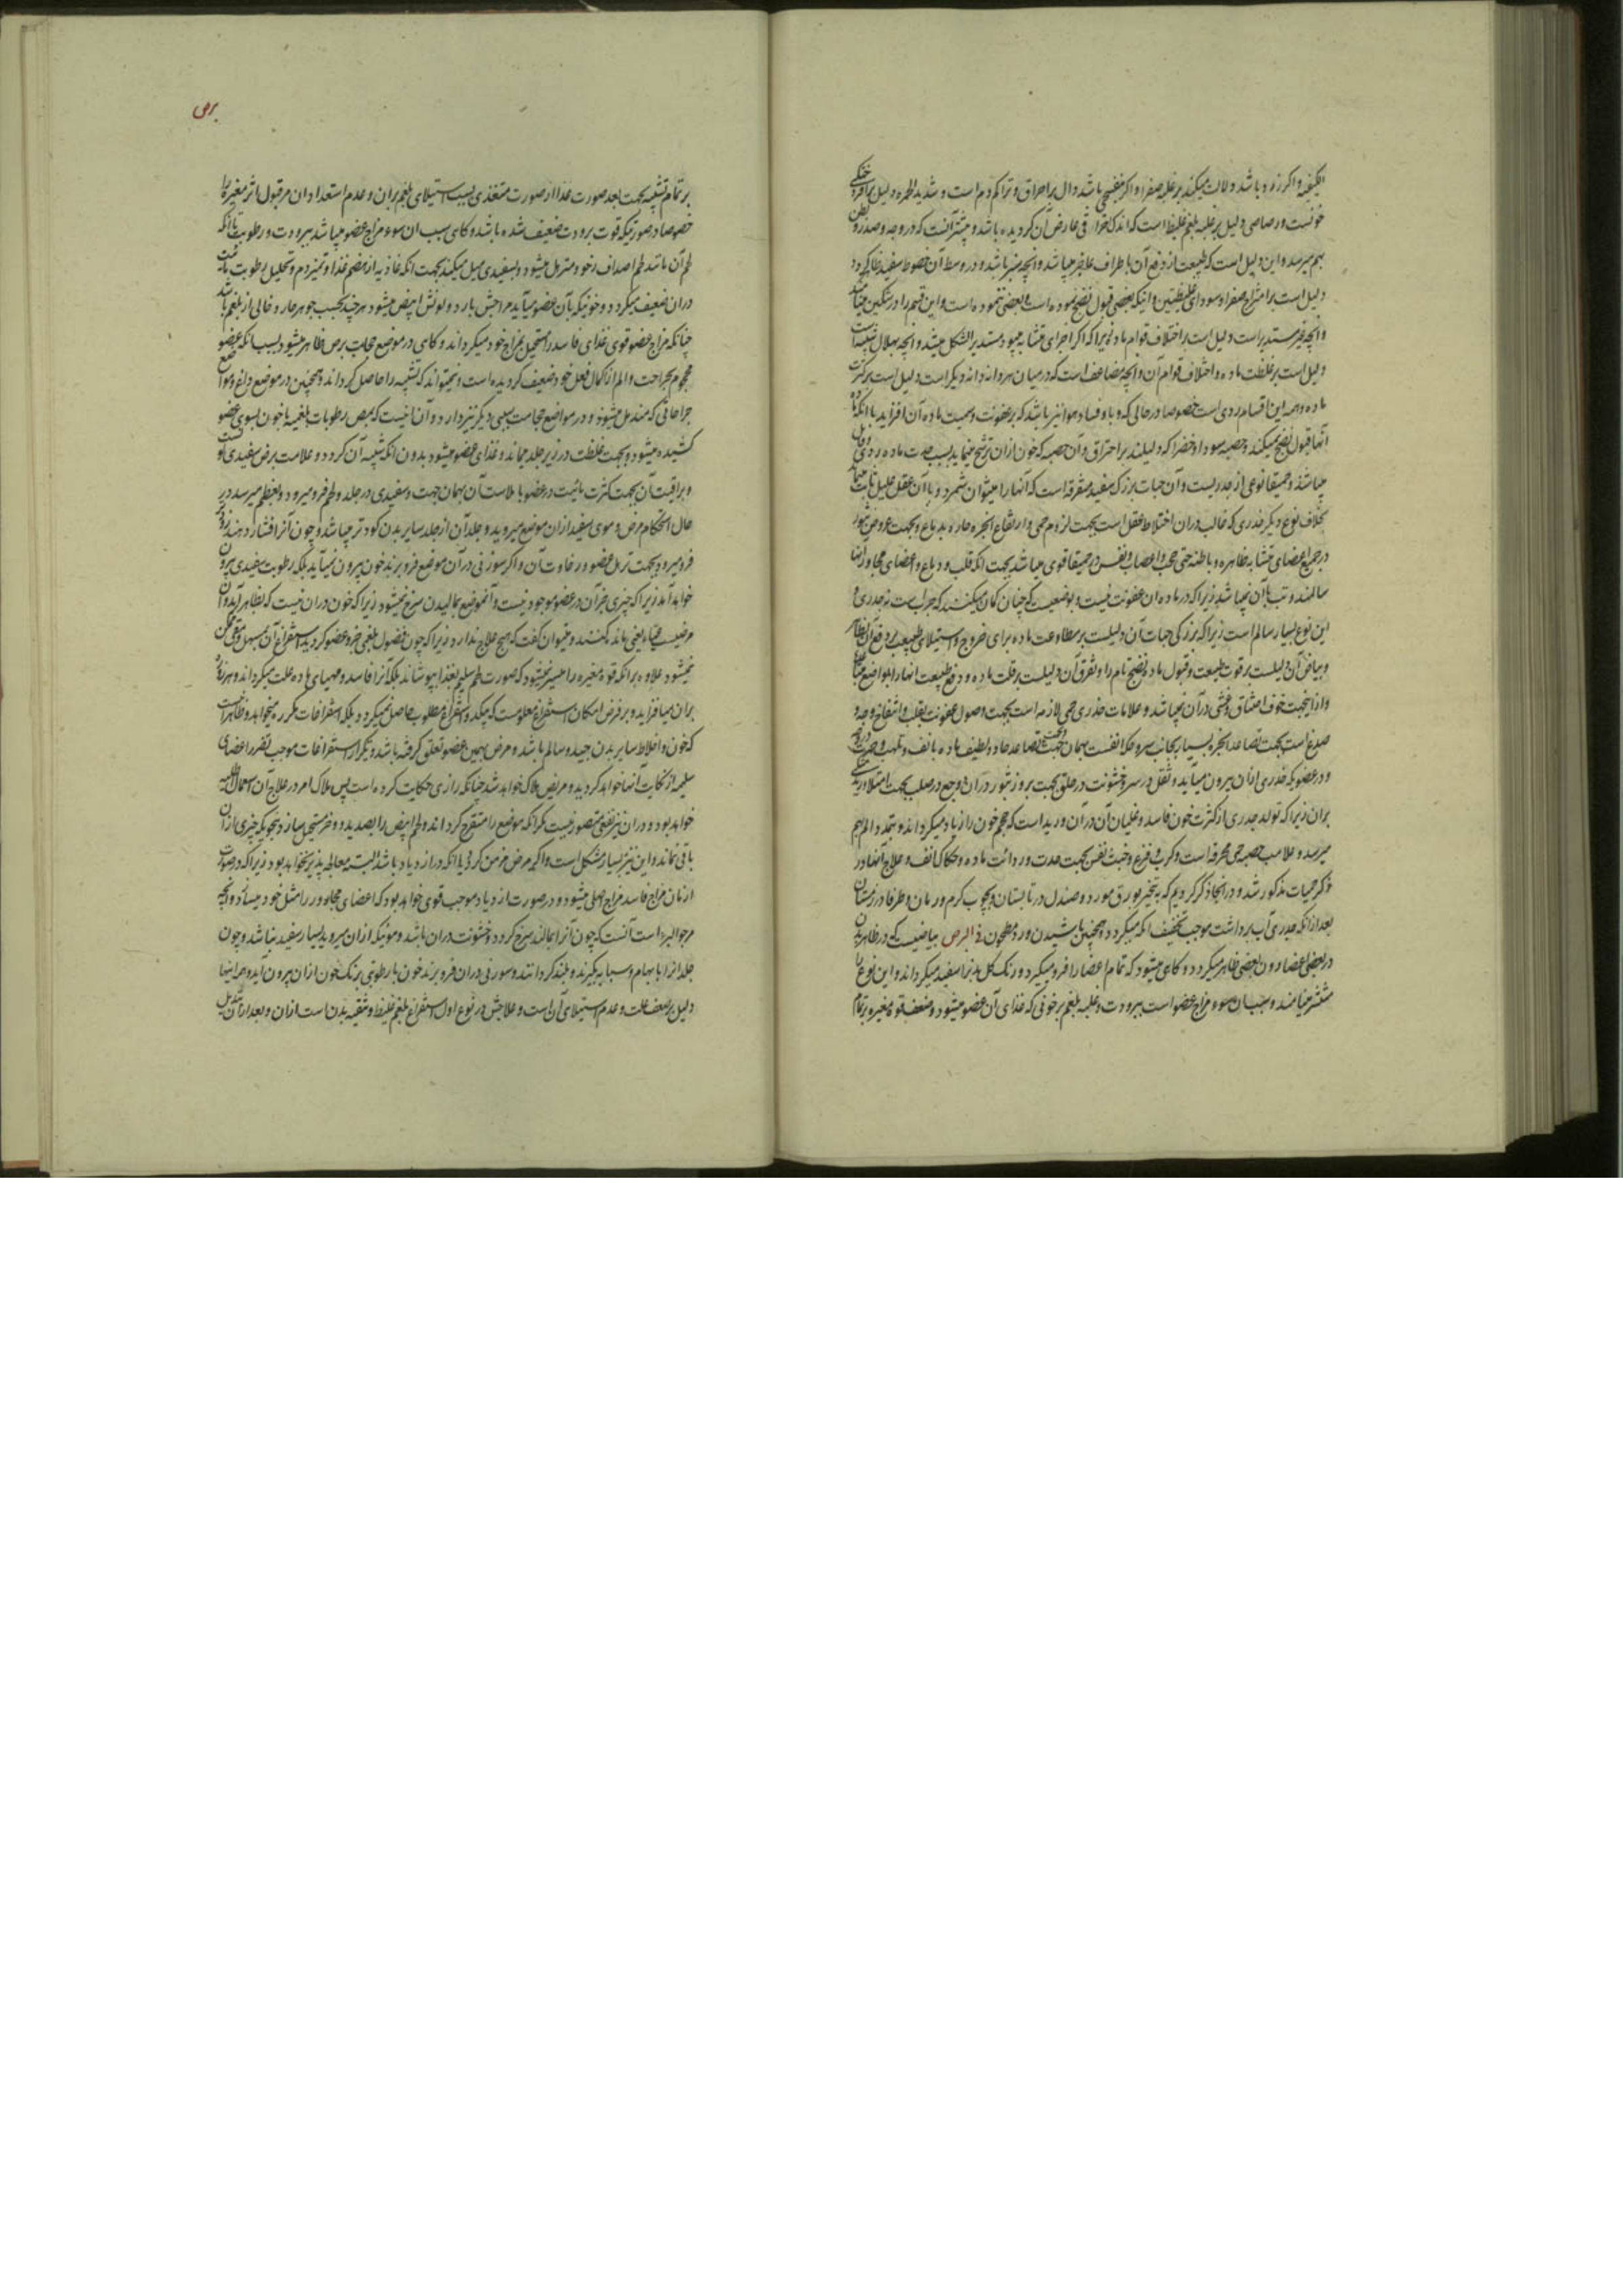 کیفیه و اگر زرد باشد دلالت میکند بر غلبه صفرا و اگر بنفسجی باشد دال بر احراق و تراکم دم است و شدید الحمره دلیل بر افراد
خونست و رصاصی دلیل بر غلبه بلغم غلیظ است که اندک احراقی عارض آن گردیده باشد و بیشتر آنست که در وجه و صدر و بطن
بهم میرسد و این دلیل است که طبیعت از دفع آن باطراف عاجز میباشد و انچه سبز باشد و در وسط آن خطوط سفید ظاهر گردد
دلیل است بر امتزاج صفرا و سودای غلیظتین و اینکه بعضی قبول نضج نموده است و بعضی ننموده است و این قسم را
و انچه غیر مستدیر است دلیل است بر اختلاف قوام ماده زیرا که اگر اجزای متشابه میبود مستدیر الشکل میشد و انچه بهلال شبیه است
دلیل است بر غلظت ماده و اختلاف قوام آن و انچه مضاعف است که در میان هر دانه دانه دیگر است دلیل است بر کثرت
ماده و همه این اقسام ردی است خصوصا در حالی که وبا و فساد هوا نیز باشد که بر عفونت و سمیت ماده آن افزاید با انکه
آنها قبول نضج نمیکند و حصبه سودا و خضرا که دلیلند بر احتراق و آن حصبه که خون از آن ترشح مینماید بسبب حدت ماده ردی و قاتل
میباشد و حمیقا نوعی از جدریست و آن حبات بزرک سفید متفرقه است که آنها را میتوان شمرد و با آن عقل علیل ثابت میماند
بخلاف نوع دیگر جدری که غالب در آن اختلاط عقل است بجهت لزوم حمی و ارتفاع ابخره حاره بدماغ و بجهت عروض بثور
در جمیع اعضای متشابه ظاهره و باطنه حتی حجب و اعصاب و نفس در حمیقا قوی میباشد بجهت انکه قلب و دماغ و اعضای مجاور آنها
سالمند و تب با آن نمیباشد زیرا که در ماده آن عفونت نیست و بوضعیست که چنان گمان میکنند که جرب است نه جدری و
این نوع بسیار سالم است زیرا که بزرگی حبات آن دلیلست بر مطاوعت ماده برای خروج و استیلای طبیعت بر دفع آن بظاهر
و بیاض آن دلیلست بر قوت طبیعت و قبول ماده نضج تام را و تفرق آن دلیلست بر قلت ماده و دفع طبیعت انها را بمواضع متباعده
و ازینجهت خوف اختناق و غشی در آن نمیباشد و علامات جدری حمی لازمه است بجهت وصول عفونت بقلب و انتفاخ وجه و
صدغ است بجهت تصاعد ابخره بسیار بجانب سر و حکه انفست بهمان جهت تصاعد حاد و لطیف ماده بانف و تلهب و حمرت
و در عضویکه جدری از آن بیرون میآید و ثقل در سر و خشونت در حلق بجهت بروز بثور در آن و وجع در صلب بجهت امتلا ورید
بران زیرا که تولد جدری از کثرت خون فاسد و غلیان آن در آن ورید است که حجم خون را زیاد میگرداند و بتمدد الم بهم
میرسد و علامت حصبه حمی محرقه است و کرب و فزع و خبث نفس بجهت حدت و ردائت ماده و حکاک انف و علاج آنها در
ذکر حمیات مذکور شد و در انجا ذکر کردیم که به تبخیر بورق مورد و صندل در تابستان و بچوب کرم و رمان و طرفا در زمستان
بعد از انکه جدری آب برداشت موجب تخفیف انکه میگردد و همچنین پاشیدن ورد مطحون فی البرص بیاضیست که در ظاهر بدن
در بعضی اعضا دون بعضی ظاهر میگردد و گاهی میشود که تمام اعضا را فرو میگیرد و رنگ کل بدنرا سفید میگرداند و این نوع را
منتشر مینامند و سبب آن سوء مزاج عضو است ببرودت و غلبه بلغم بر خونی که غذای آن عضو میشود و ضعف قوة مغیره بر تمام
برص
بر تمام تشبیه بجهت بعد صورت غذا از صورت متغذی بسبب استیلای بلغم بران و عدم استعداد ان مر قبول تاثیر مغیره را
خصوصا در صورتیکه قوت برودت ضعیف شده باشد و گاهی سبب ان سوء مزاج عضو میباشد ببرودت و رطوبت تا انکه
لحم آن مانند لحم اصداف رخو و مترهل میشود و بسفیدی میل میکند بجهت انکه غاذیه از هضم غذا و تمیز دم و تحلیل رطوبت
دران ضعیف میگردد و خونیکه بآن عضو میآید مزاجش بارد و لونش ابیض میشود هر چند بحسب جوهر حار و خالی از بلغم باشد
چنانکه مزاج عضو قوی غذای فاسد را مستحیل بمزاج خود میگرداند و گاهی در موضع حجامت برص ظاهر میشود بسبب انکه عضو
محجوم بجراحت و الم از کمال فعل خود ضعیف گردیده است و نمیتواند که تشبیه را حاصل گرداند و همچنین در موضع داغ و مواضع
جراحاتی که مندمل میشود و در مواضع حجامت سببی دیگر نیز دارد و آن اینست که بمص رطوبات بلغمیه با خون بسوی عضو
کشیده میشود و بجهت غلظت در زیر جلد میماند و غذای عضو میشود بدون انکه شبیه آن گردد و علامت برص سفیدی
و براقیت آن بجهت کثرت مائیت در عضو با ملاست آن بهمان جهت و سفیدی در جلد و لحم فرو میرود و بعظم میرسد در
حال استحکام مرض و موی سفید از ان موضع میروید و جلد آن از جلد سایر بدن گودتر میباشد و چون آنرا افشار دهند
فرو میرود بجهت ترهل عضو و رخاوت آن و اگر سوزنی در آن موضع فرو برند خون بیرون نمیآید بلکه رطوبت سفیدی بیرون
خواهد آمد زیرا که چیزی جز آن در عضو موجود نیست و آنموضع بمالیدن سرخ نمیشود زیرا که خون دران نیست که بظاهر آید و آن
نمیشود علاوه برانکه قوة مغیره را میسر نمیشود که صورت لحم سلیم بغذا بپوشاند بلکه آنرا فاسد و مهیای ماده علت میگرداند و هر روز
بران میافزاید و بر فرض امکان استفراغ معلومست که بیکدو استفراغ مطلوب حاصل نمیگردد بلکه استفراغات مکرره میخواهد و ظاهر است
که خون و اخلاط سایر بدن جید و سالم باشد و مرض بهمین عضو تعلق گرفته باشد و تکرار استفراغات موجب تضرر اعضای
سلیمه از نکایت آنها خواهد گردید و مریض هلاک خواهد شد چنانکه رازی حکایت کرده است پس ملاک امر در علاج آن استعمال اطلیه
خواهد بود و دران نیز نفعی متصور نیست مگر انکه موضع را متقرح گرداند و لحم ابیض را بصدید و وضر مستحیل سازد بنحویکه چیزی از ان
باقی نماند و این نیز بسیار مشکل است و اگر مرض مزمن گردد یا انکه در ازدیاد باشد البته معالجه پذیر نخواهد بود زیرا که در صورت
ازمان مزاج فاسد مزاج اصلی میشود و در صورت ازدیاد موجب قوی خواهد بود که اعضای مجاور را مثل خود میسازد و انچه
مرجو البرء است آنست که چون آنرا بمالند سرخ گردد و خشونت دران باشد و مویکه از ان میروید بسیار سفید نباشد و چون
جلد انرا بابهام و سبابه بگیرند و بلند کردانند و سوزنی دران فرو برند خون یا رطوبتی برنگ خون از ان بیرون آید
دلیل بر ضعف علت و عدم استیلای آن است و علاجش در نوع اول استفراغ بلغم غلیظ و تنقیه بدن است از ان و بعد از ان تبدیل